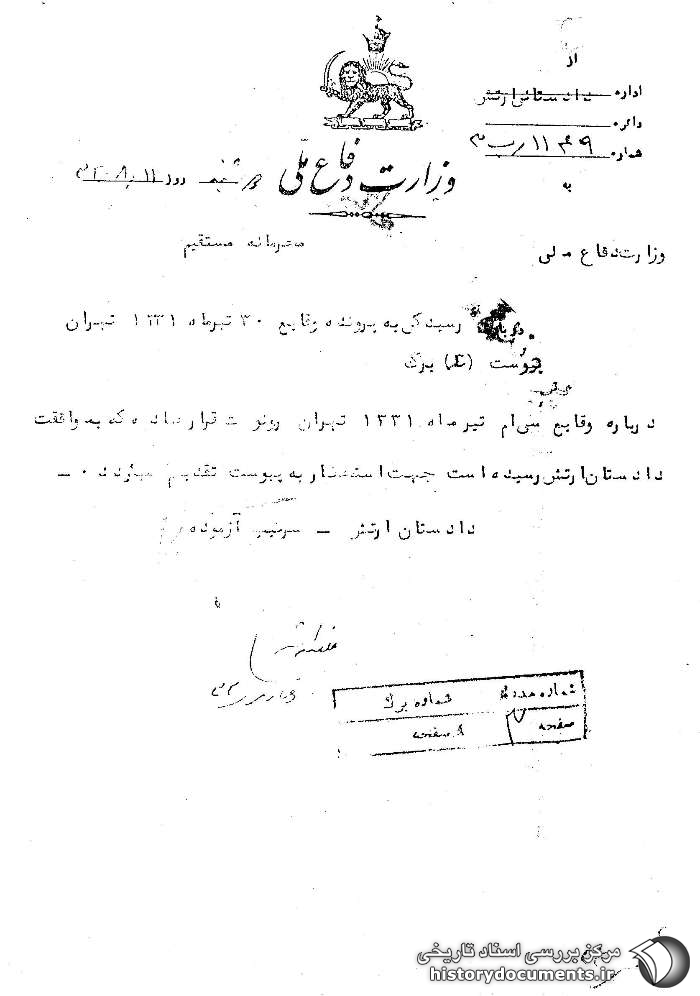 از
اداره دادستانی ارتش
دائره
شماره
به
وزارت دفاع ملّی
روز شنبه
محرمانه مستقیم
وزارت دفاع ملی
درباره رسیدگی به پرونده وقایع ۳۰ تیرماه ۱۳۳۱ تهران
پیوست برگ
درباره وقایع سی‌ام تیرماه ۱۳۳۱ تهران رونوشت قرار صادره که به موافقت
دادستان ارتش رسیده است جهت استحضار به پیوست تقدیم میگردد ۰ ــ
دادستان ارتش ــ سرتیپ آزموده
شماره برگ
صفحه
صفحه
مرکز بررسی اسناد تاریخی
historydocuments.ir